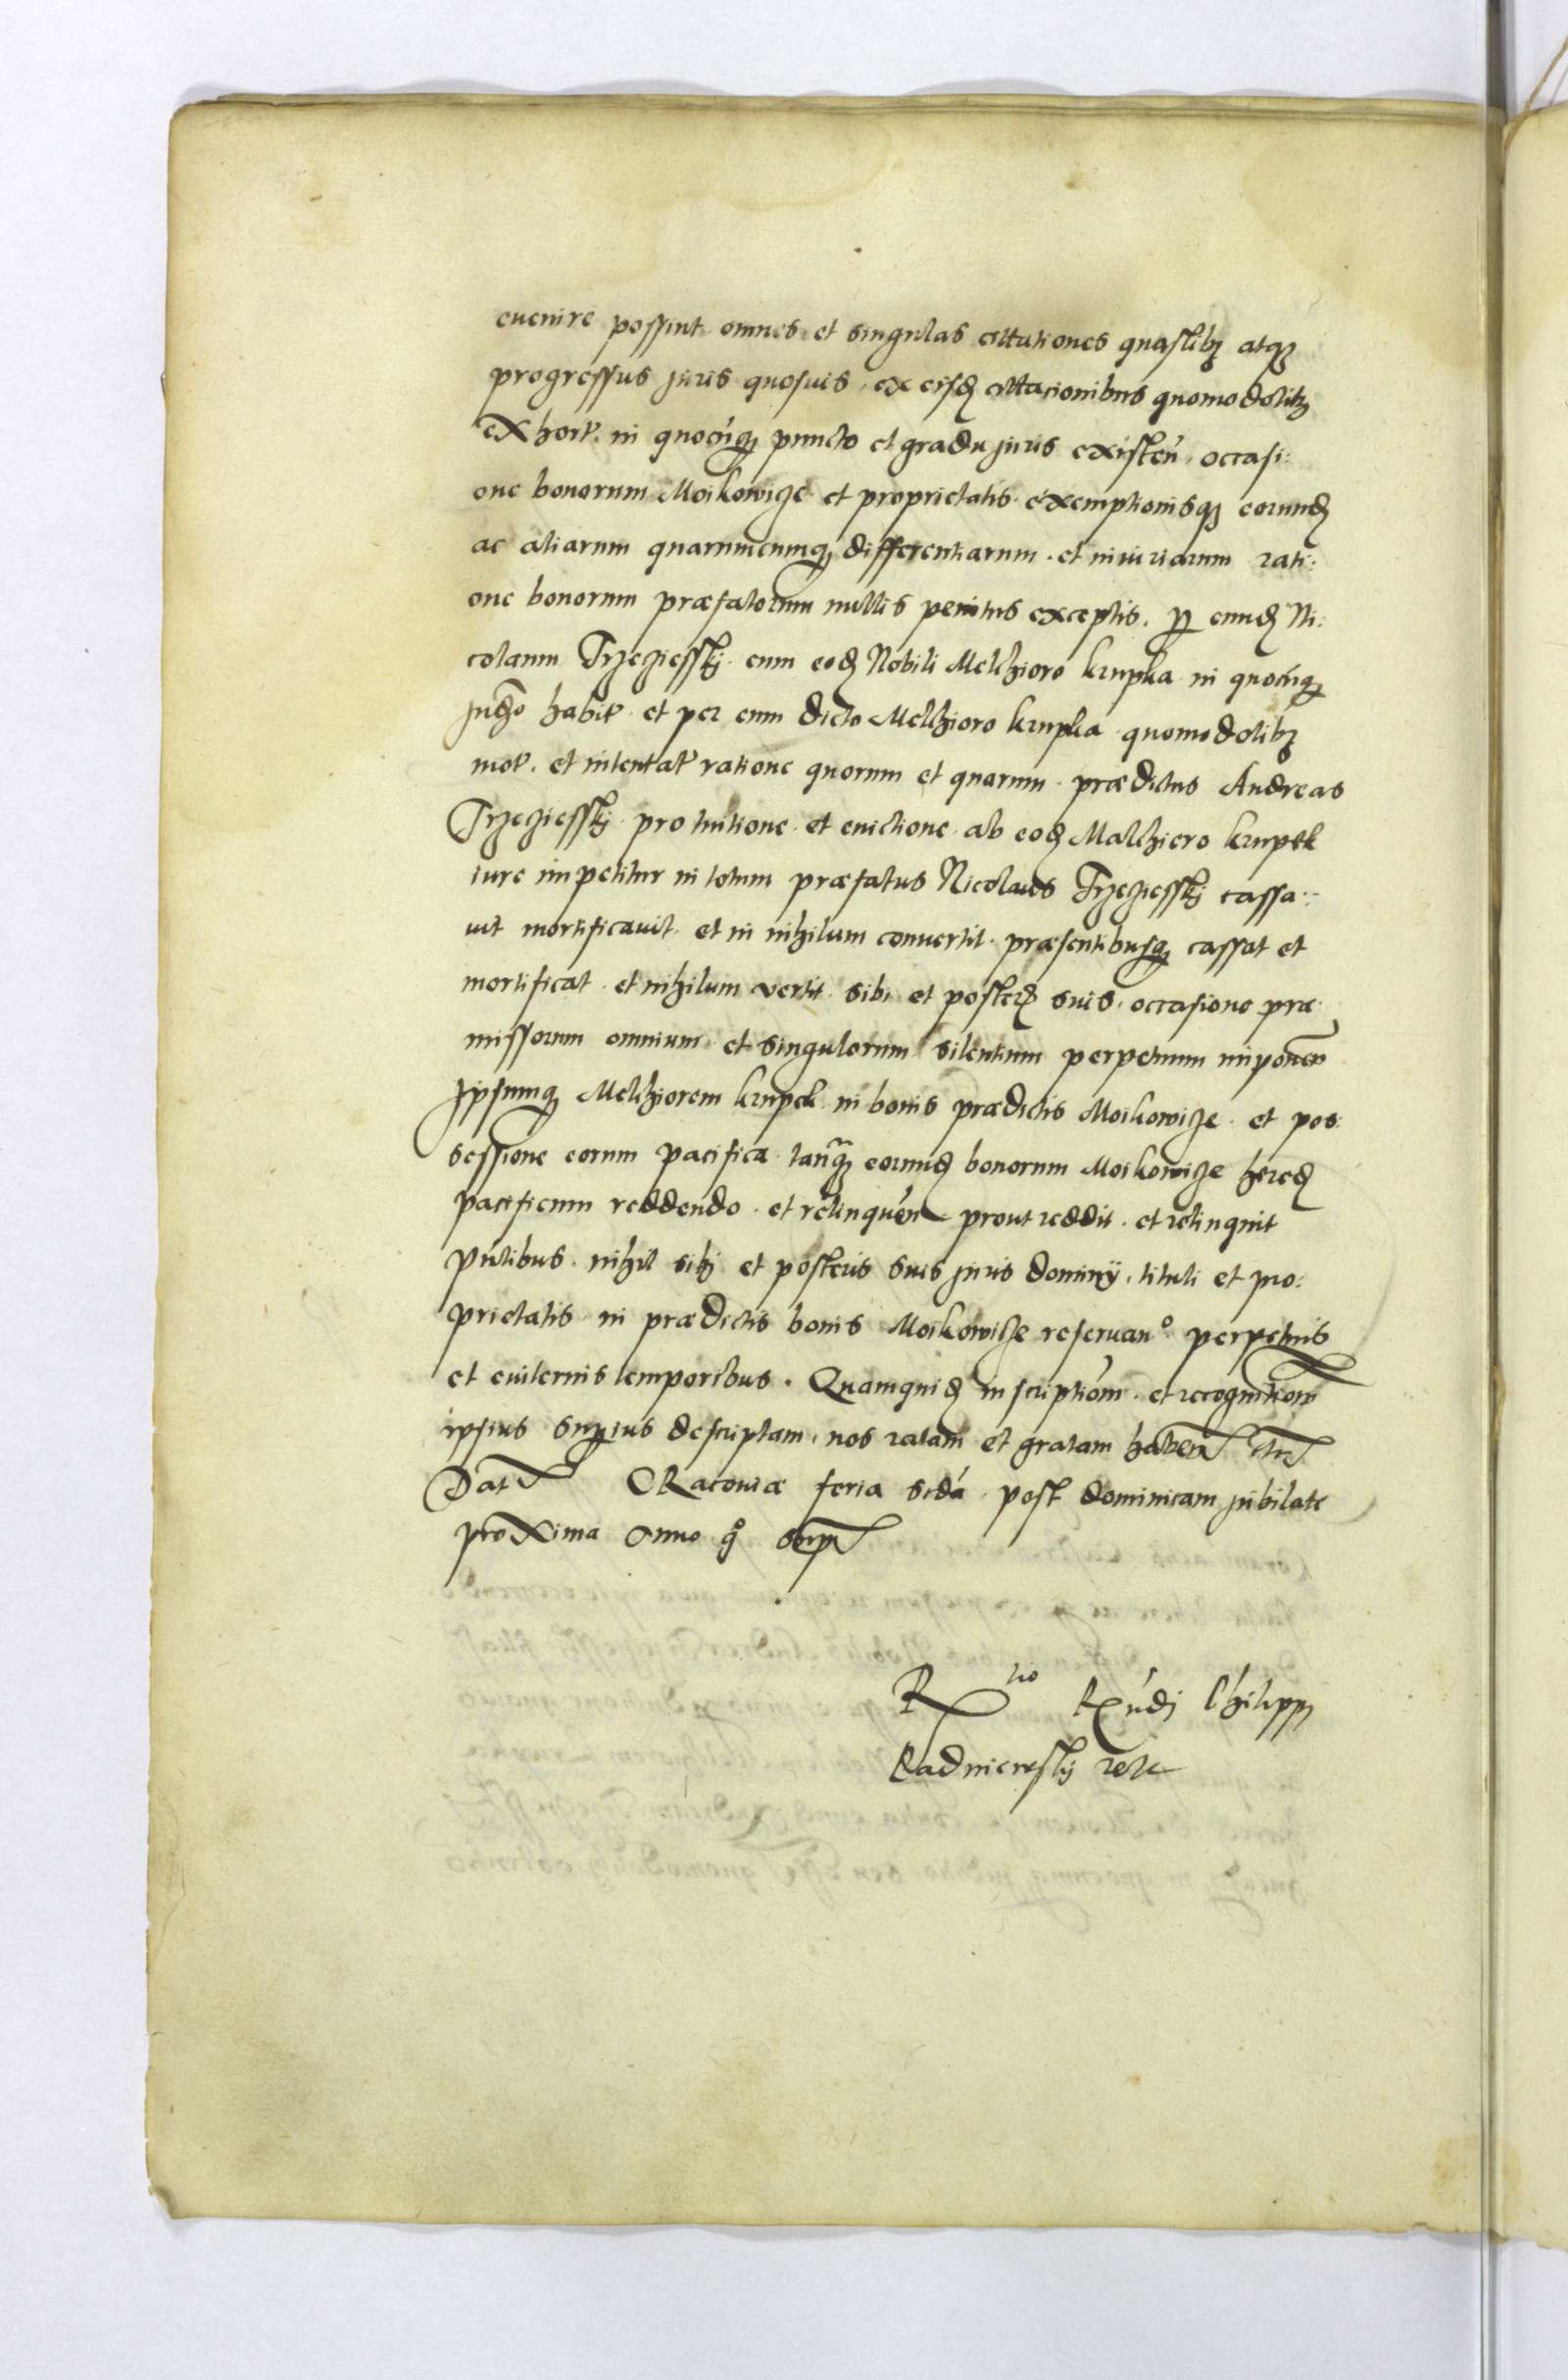 euenire possint omnes et singulas cittationes quaslibz atqz
progressus juris quosuis, ex eisd cittacionibus quomodolibz
exhort. in quocuqz puncto et gradu juris existen. occasi:
one bonorum Moikowicze et proprietatis exemptionisqz eorund
ac aliarum quarumcumqz differentiarum. et iniuriarum rati:
one bonorum præfatorum nullis penitus exceptis. per eund Ni:
colaum Trzeziessky cum eod Nobili Melchiore krupka in quocuqz
Judo habit. et per eum dicto Melchioro krupka quomodolibz
mot. et intentat ratione quorum et quarum prædictus Andreas
Trzeziessky pro tuitione et euictione ab eod Malchiero krupek
iure impetitur in totum præfatus Nicolaus Trzeziessky cassa:
uit mortificauit et in nihilum conuertit præsentibusqz cassat et
mortificat et nihilum vertit sibi et posterd suis occasione præ
missorum omnium et singulorum silentium perpetuum imponen
Ipsumqz Melchiorem krupek in bonis prædictis Moikowicze et pos:
sessione eorum pacifica tanqz eorund bonorum Moikowicze hered
pacificum reddendo et relinquen prout reddit et relinquit
pntibus nihil sibi et posteris suis juris dominij, tituli et pro:
prietatis in prædictis bonis Moikowicze reseruano perpetuis
et euiternis temporibus. Quamquid inscriptiom et recognitiom
ipsius superius descriptam, nos ratam et gratam haben etc
Dat CRacouiæ feria scda post dominicam jubilate
proxima Anno qo supr
Philippj